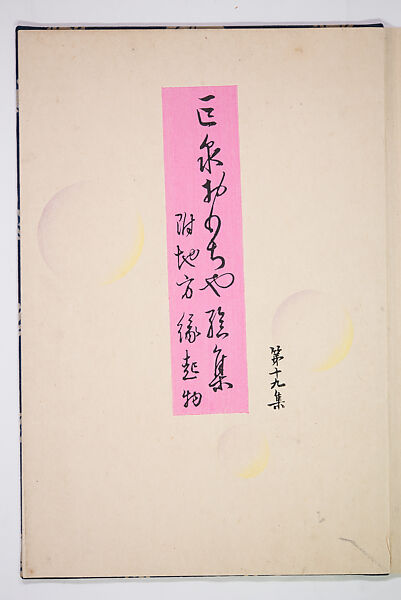 巨泉おもちや繪集
附地方縁起物
第十九集